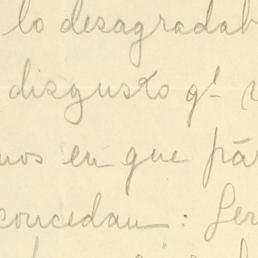 lo desagradab
disgusto qᵉ
mos en que pá
concedan : Ser